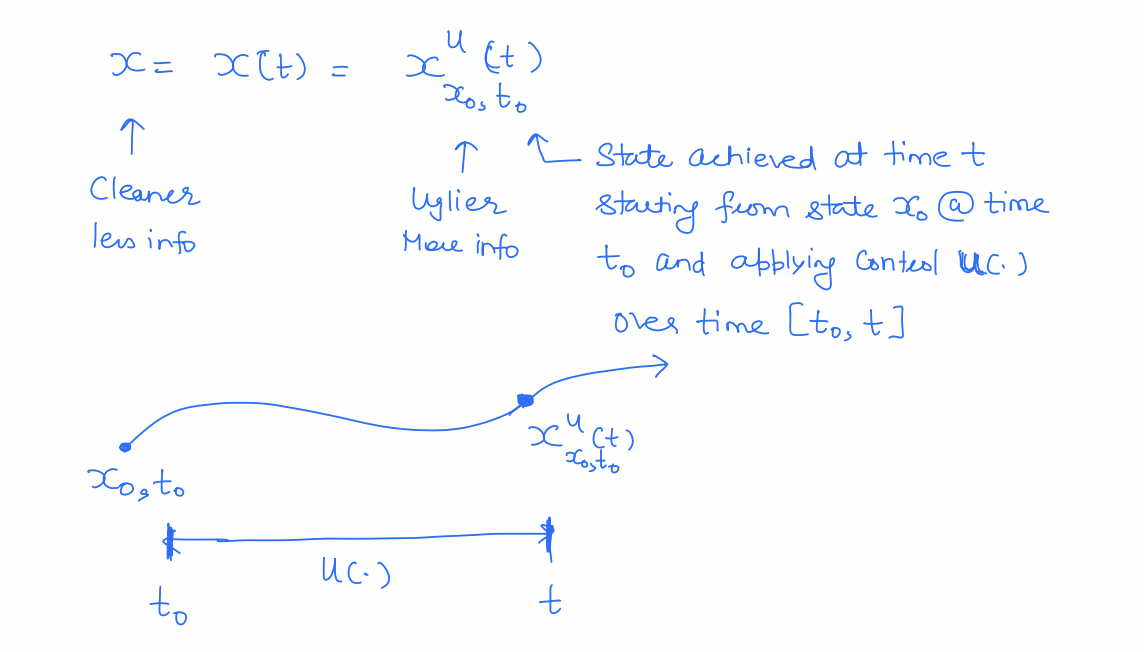 x = x(t) = x^u_{x_0, t_0}(t)
↑ Cleaner less info
↑ Uglier More info
State achieved at time t
starting from state x_0 @ time
t_0 and applying control u(.)
over time [t_0, t]
x_0, t_0
x^u_{x_0, t_0}(t)
u(.)
t_0
t